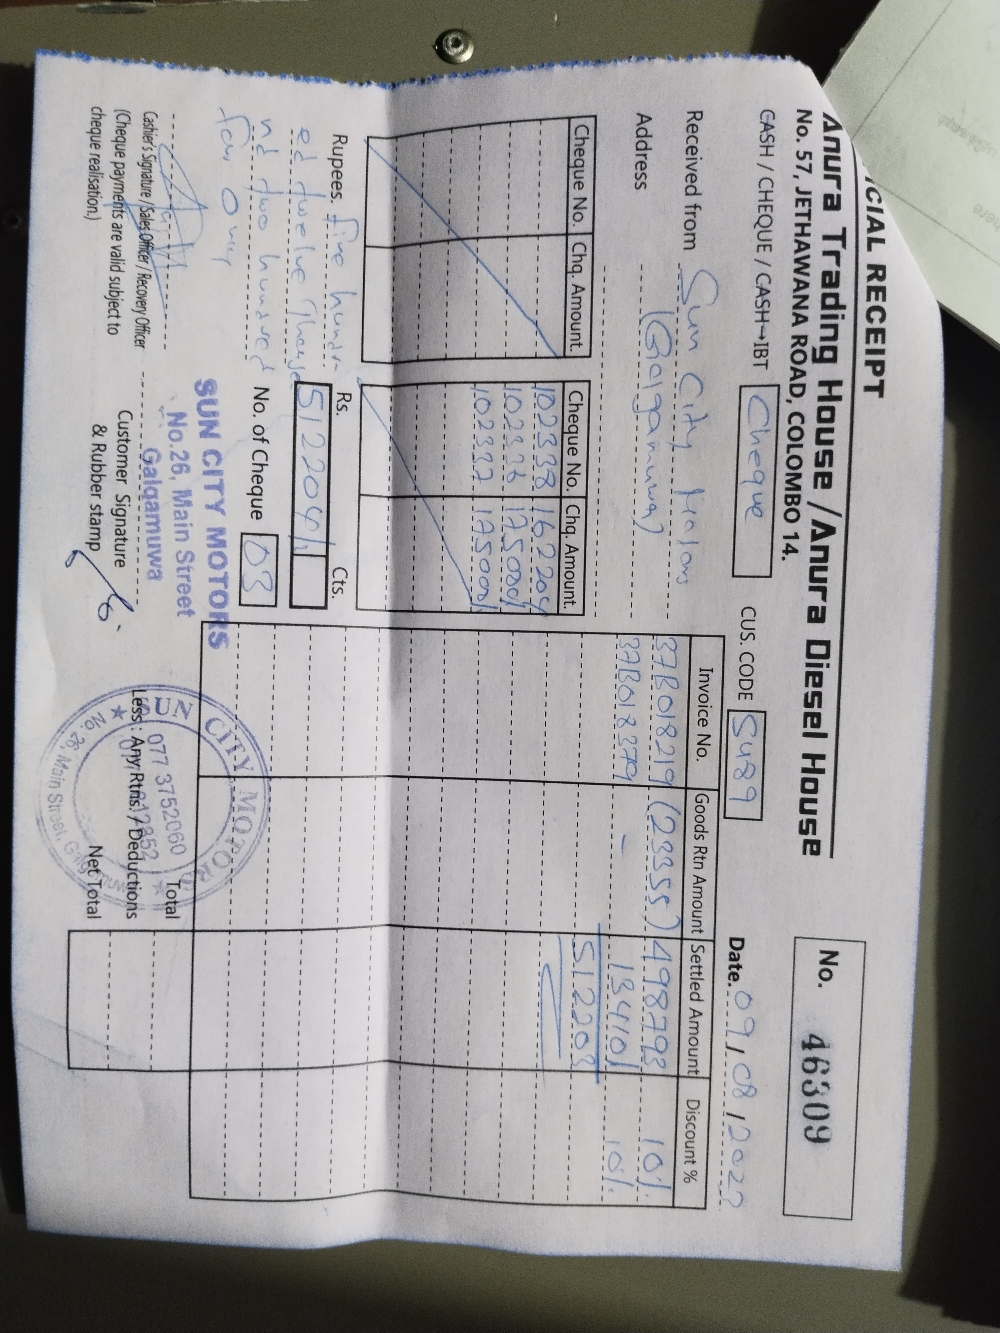 CIAL RECEIPT
Anura Trading House / Anura Diesel House
No. 57, JETHAWANA ROAD, COLOMBO 14.
No. 46309
CASH / CHEQUE / CASH→IBT Cheque
CUS. CODE SU89
Date. 09/08/2022
Received from Sun City Motors
Address (Galgamuwa)
Cheque No. Chq. Amount.
Cheque No. Chq. Amount.
102338 162204/
102336 175000/
102337 175000/
Invoice No. Goods Rtn Amount Settled Amount Discount %
37B018219 (23355) 498793 10%
37B018379 - 13410/ 10%
512203
Rupees. five hundr
ed twelve Thousa
nd two hundred
four only
Rs. Cts.
512204/
No. of Cheque 03
SUN CITY MOTORS
No.26, Main Street
Galgamuwa
Cashier's Signature / Sales Officer / Recovery Officer
(Cheque payments are valid subject to
cheque realisation.)
Customer Signature
& Rubber stamp
SUN CITY MOTORS
077 3752060
No. 26, Main Street,
Total
Less : Any Rtns. / Deductions
Net Total